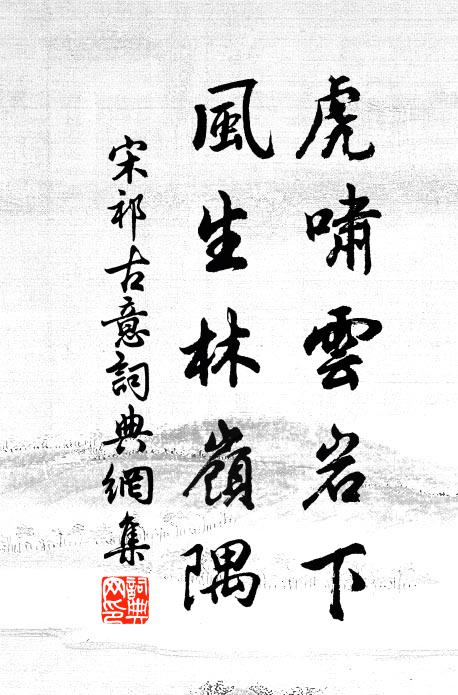 虎嘯雲岩下
風生林嶺隅
宋祁古意詞典網集
詞典网印